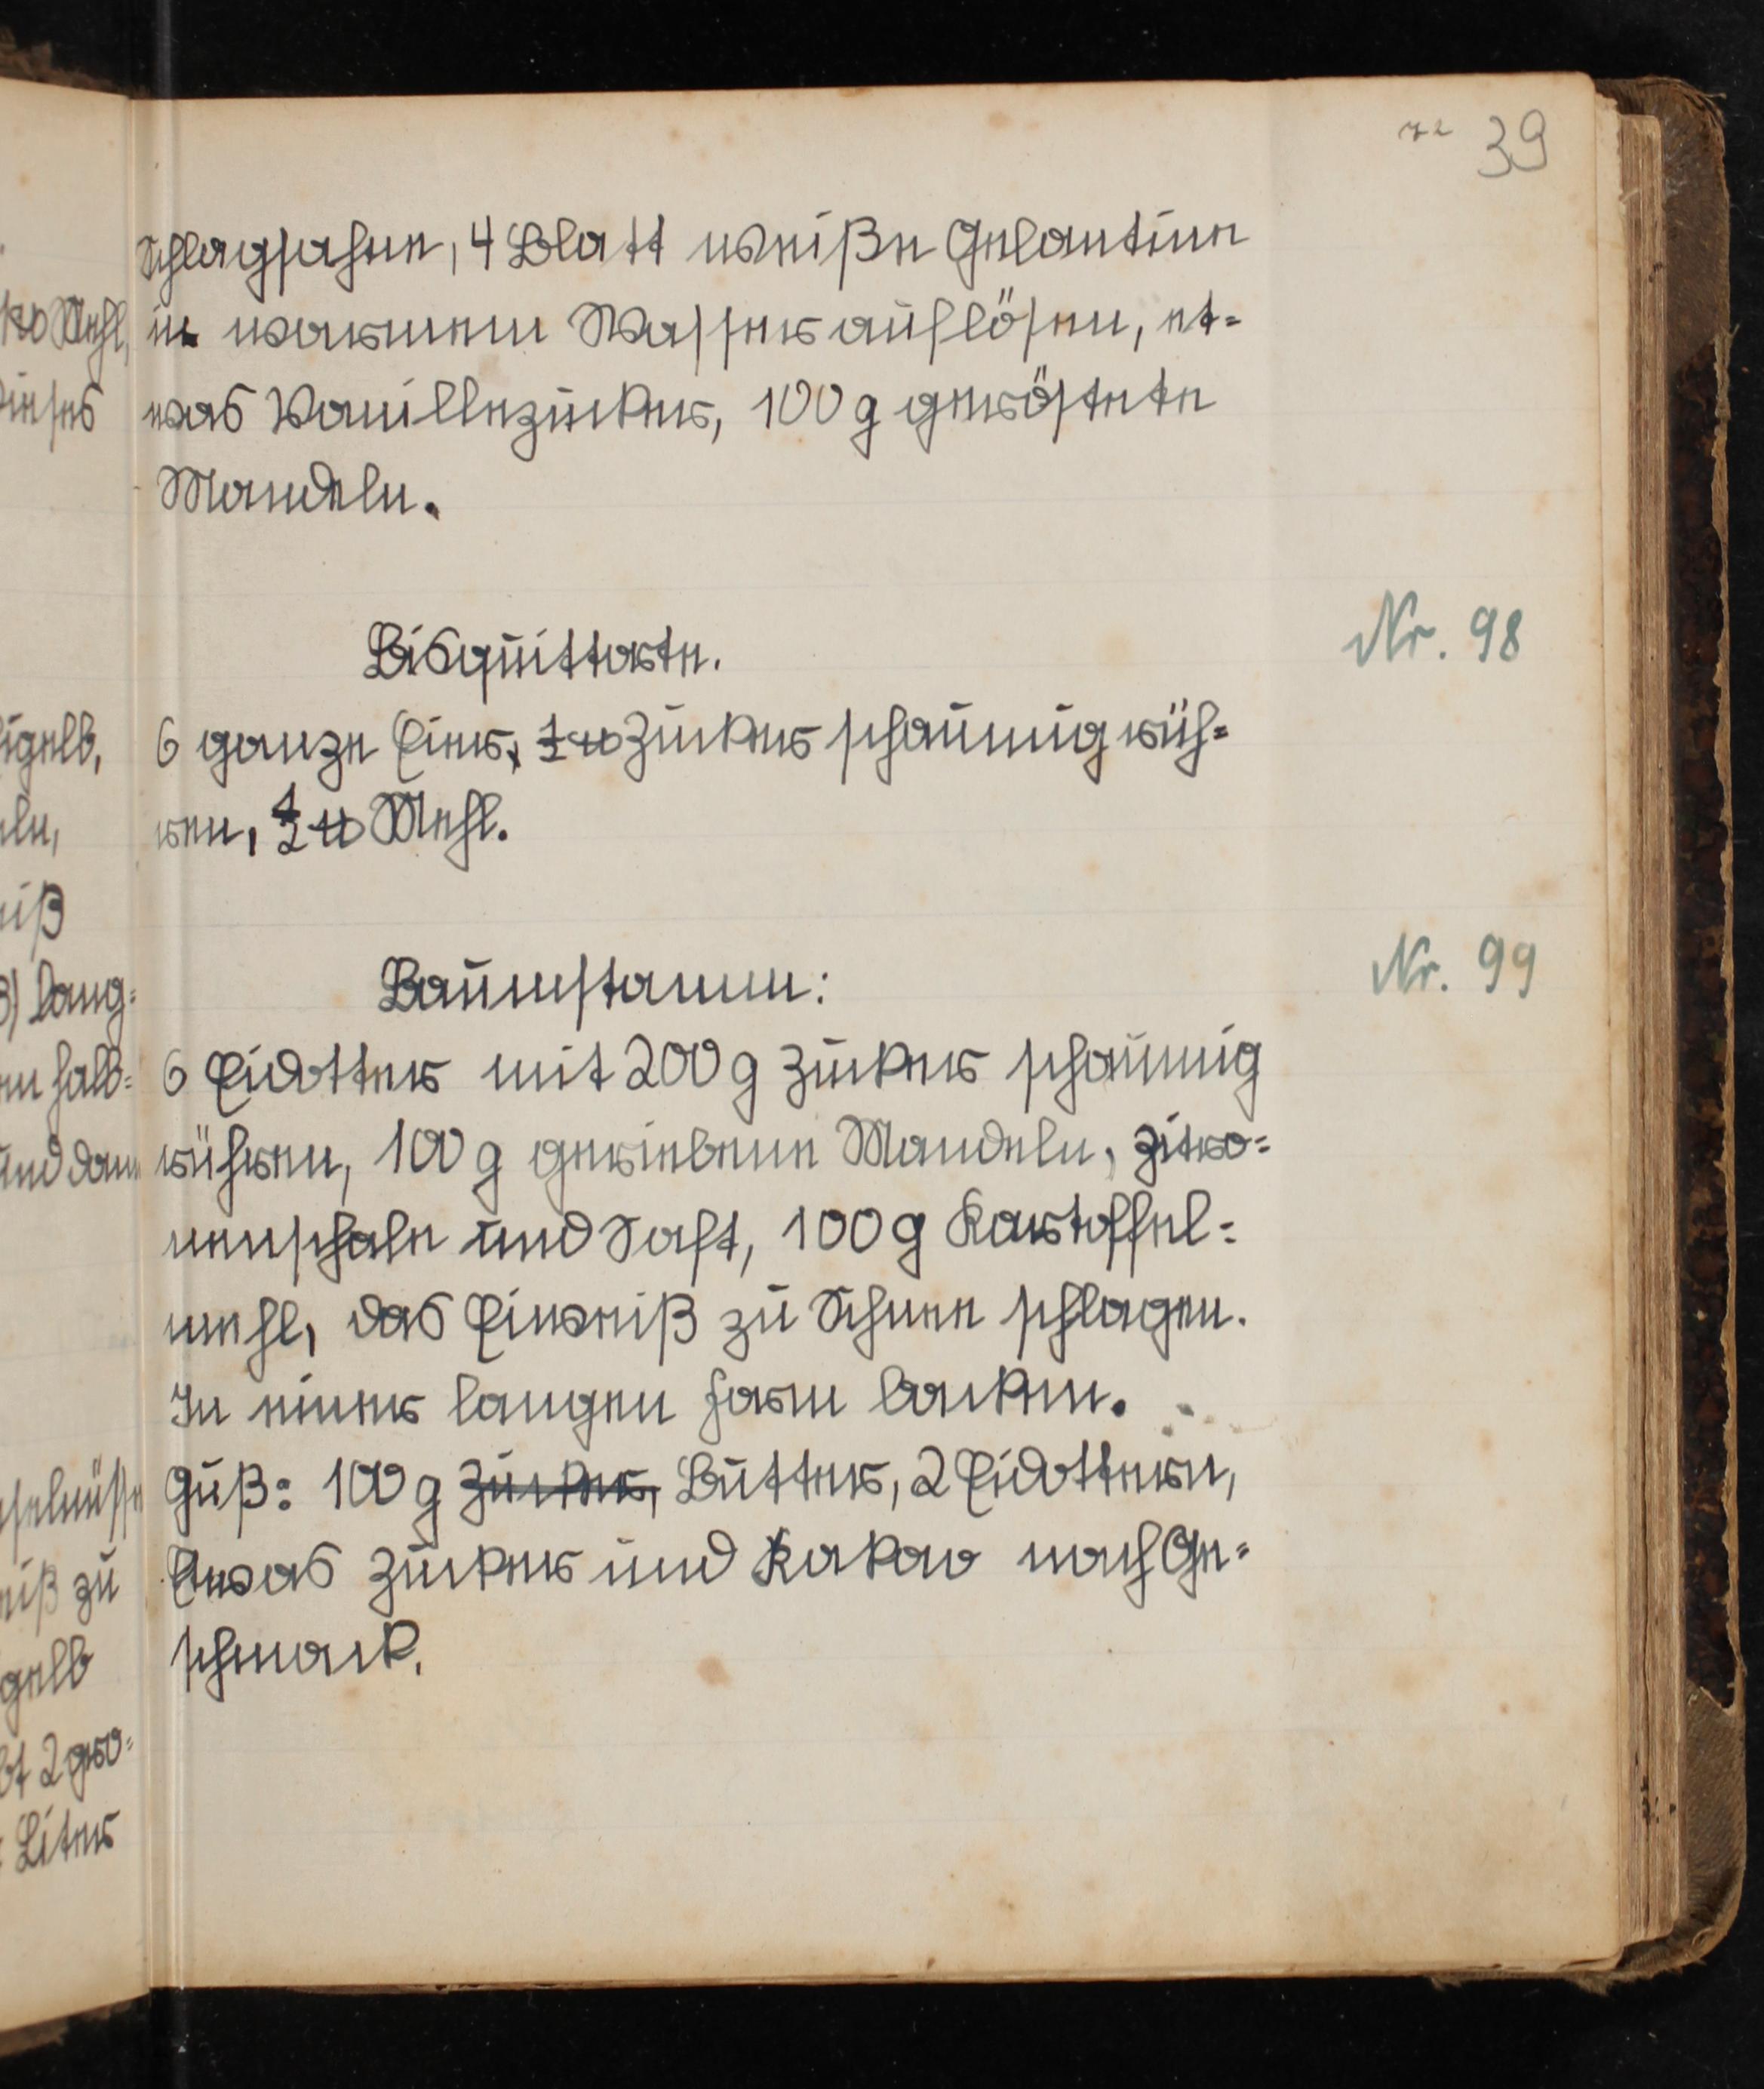 39
Schlagsahne, 4 Blatt weiße Gelantine
in warmem Wasser auflösen, et=
was Vanillezucker, 100 g geröstete
Mandeln.
Bisquittorte. Nr. 98
6 ganze Eier, ½ ℔ Zucker schaumig rüh=
ren, ½ ℔ Mehl.
Baumstamm: Nr. 99
6 Eidotter mit 200 g Zucker schaumig
rühren, 100 g geriebene Mandeln, Zitro=
nenschale und Saft, 100 g Kartoffel=
mehl, das Eiweiß zu Schnee schlagen.
In einer langen Form backen.
Guß: 100 g Zucker, Butter, 2 Eidottern,
Etwas Zucker und Kakao nach Ge=
schmack.
Mehl,
dieses
igelb,
eln,
eiß
3) Lang=
en halb=
und dann
selnüsse
eiß zu
gelb
2 gro=
Liter